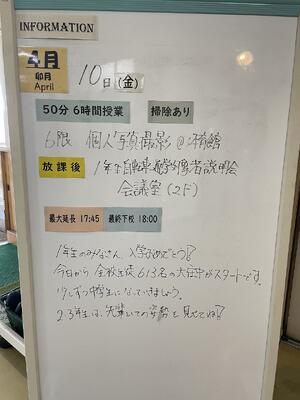 INFORMATION
4月
卯月
April
10日(金)
50分 6時間授業
掃除あり
6限 個人写真撮影@
放課後
1年生自転車通学対象者説明会
会議室(2F)
最大延長 17:45
最終下校 18:00
1年生のみなさん、入学おめでとう!
今日から全校生徒613名の大在中がスタートです。
少しずつ中学生になっていきましょう。
2.3年生は、先輩としての姿勢を見せてね!